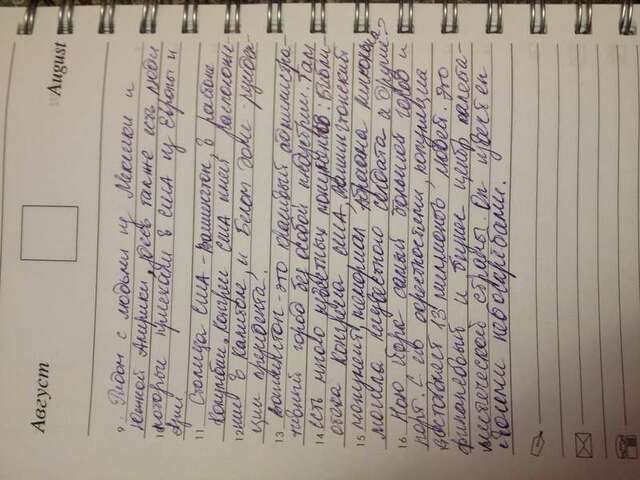 Август
August
9 Рядом с людьми из Мексики и
Южной Америки, здесь также есть люди
10 которые приехали в США из Европы и
Азии.
11 Столица США - Вашингтон, в районе
Колумбии. Конгресс США имеет расположе-
12 ние в Капитоле, и Белом доме - резиден-
ции президента.
13 Вашингтон - это красивый администра-
тивный город без особой индустрии. Там
14 есть много известных монументов: Библи-
отека Конгресса США, Вашингтонский
15 монумент, мемориал Авраама Линкольна
могила Неизвестного солдата и другие
16 Нью Йорк самый большой город и
порт. С его окрестностями, популяция
составляет 13 миллионов людей. Это
финансовый и бизнес центр капита-
листической страны. Он известен
своими небоскрёбами.